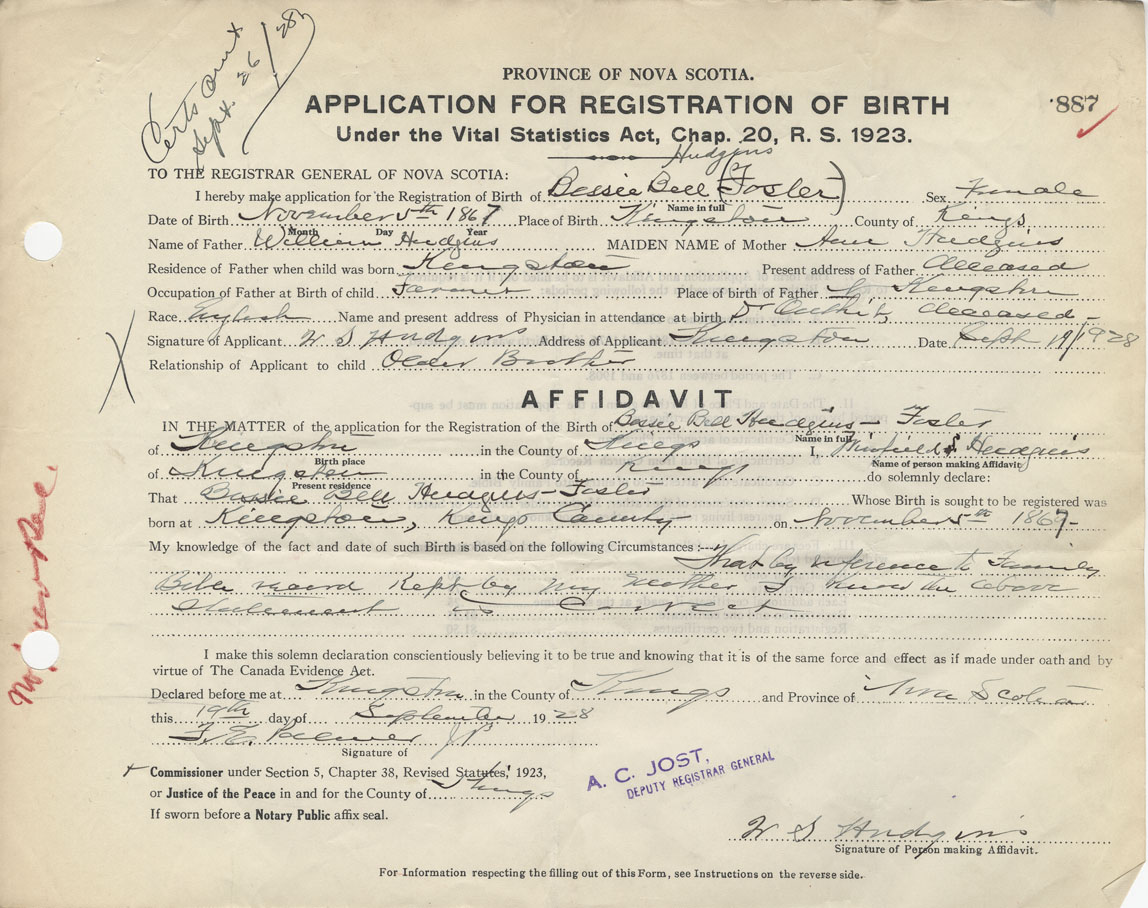 Certs out
Sept. 26/28
PROVINCE OF NOVA SCOTIA.
APPLICATION FOR REGISTRATION OF BIRTH
887
Under the Vital Statistics Act, Chap. 20, R. S. 1923.
Hudgins
TO THE REGISTRAR GENERAL OF NOVA SCOTIA:
I hereby make application for the Registration of Birth of Bessie Bell (Foster) Sex Female
Name in full
Date of Birth November 5th 1867 Place of Birth Kingston County of Kings
Month Day Year
Name of Father William Hudgins MAIDEN NAME of Mother Ann Hudgins
Residence of Father when child was born Kingston Present address of Father deceased
Occupation of Father at Birth of child Farmer Place of birth of Father Kingston
Race English Name and present address of Physician in attendance at birth Dr deceased -
Signature of Applicant W S Hudgins Address of Applicant Kingston Date Sept 19/1928
Relationship of Applicant to child Older Brother
AFFIDAVIT
IN THE MATTER of the application for the Registration of the Birth of Bessie Bell Hudgins - Foster
Name in full
of Kingston in the County of Kings I, Winfield S Hudgins
Birth place Name of person making Affidavit
of Kingston in the County of Kings do solemnly declare:
Present residence
That Bessie Bell Hudgins-Foster Whose Birth is sought to be registered was
born at Kingston, Kings County on November 5th 1867-
My knowledge of the fact and date of such Birth is based on the following Circumstances :-- That by reference to Family
Bible record kept by my mother I know the above
statement is correct
I make this solemn declaration conscientiously believing it to be true and knowing that it is of the same force and effect as if made under oath and by
virtue of The Canada Evidence Act.
Declared before me at Kingston in the County of Kings and Province of Nova Scotia
this 19th day of September 1928
F. E. Palmer J P
Signature of
Commissioner under Section 5, Chapter 38, Revised Statutes, 1923,
or Justice of the Peace in and for the County of Kings
If sworn before a Notary Public affix seal.
A. C. JOST,
DEPUTY REGISTRAR GENERAL
W S Hudgins
Signature of Person making Affidavit.
For Information respecting the filling out of this Form, see Instructions on the reverse side.